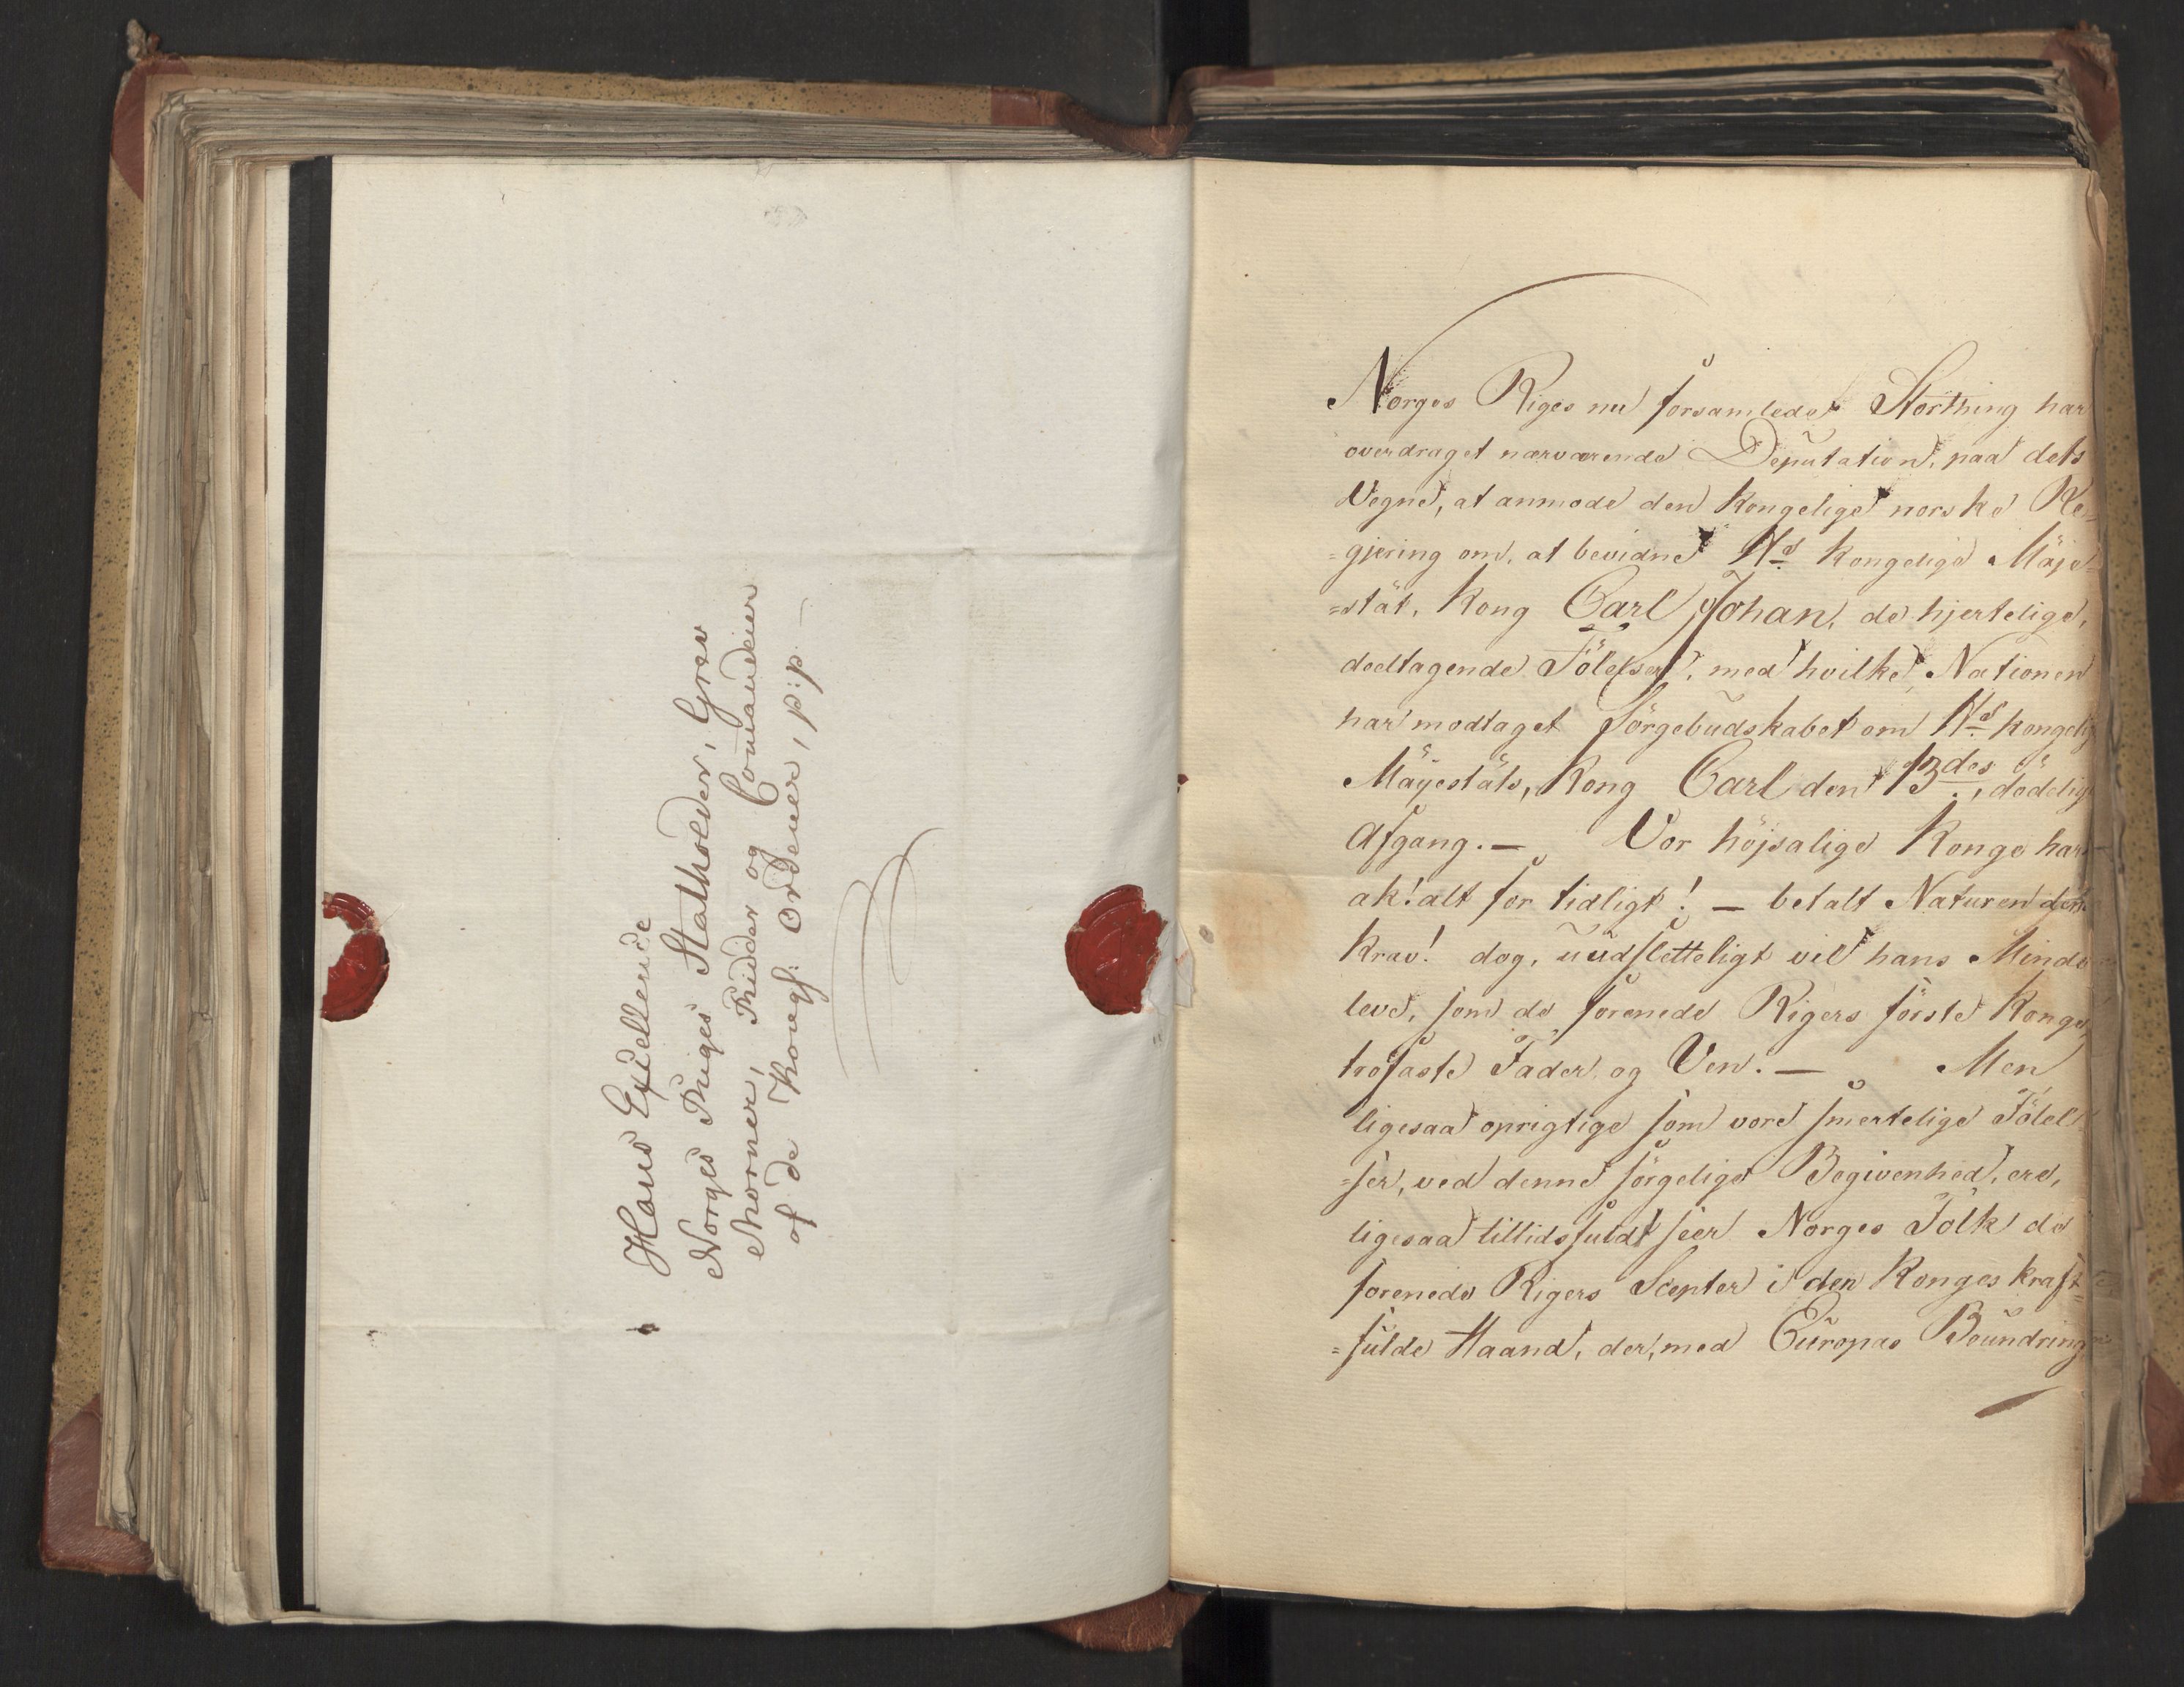 Hans Excellence
Norges Riiges Statholder, Grev
Mörner, Ridder og Comandeur
af de Kongl: Ordener, p:p. —
Norges Riges nu forsamlede Storthing har
overdraget nærværende Deputation, paa dets
Vegne, at anmode den kongelige norske Re-
=gjering om, at bevidne Hs kongelige Maje-
=stät, Kong Carl Johan, de hjertelige,
deeltagende Fölelser, med hvilke Nationen
har modtaget Sörgebudskabet om Hs kongelig
Mayestäts, Kong Carl den 13des, dödelig
Afgang. — Vor höjsalige Konge har
ak! alt for tidligt! — betalt Naturen den
Krav! dog, uudsletteligt vil hans Minde
leve, som de forenede Rigers förste Konge,
trofaste Fader og Ven. — Men
ligesaa oprigtige som vore smertelige Fölel
=ser, ved denne sörgelige Begivenhed, ere,
ligesaa tillidsfuldt seer Norges Folk de
forenede Rigers Scepter i den Konges kraft-
=fulde Haand, der, med Europas Beundring